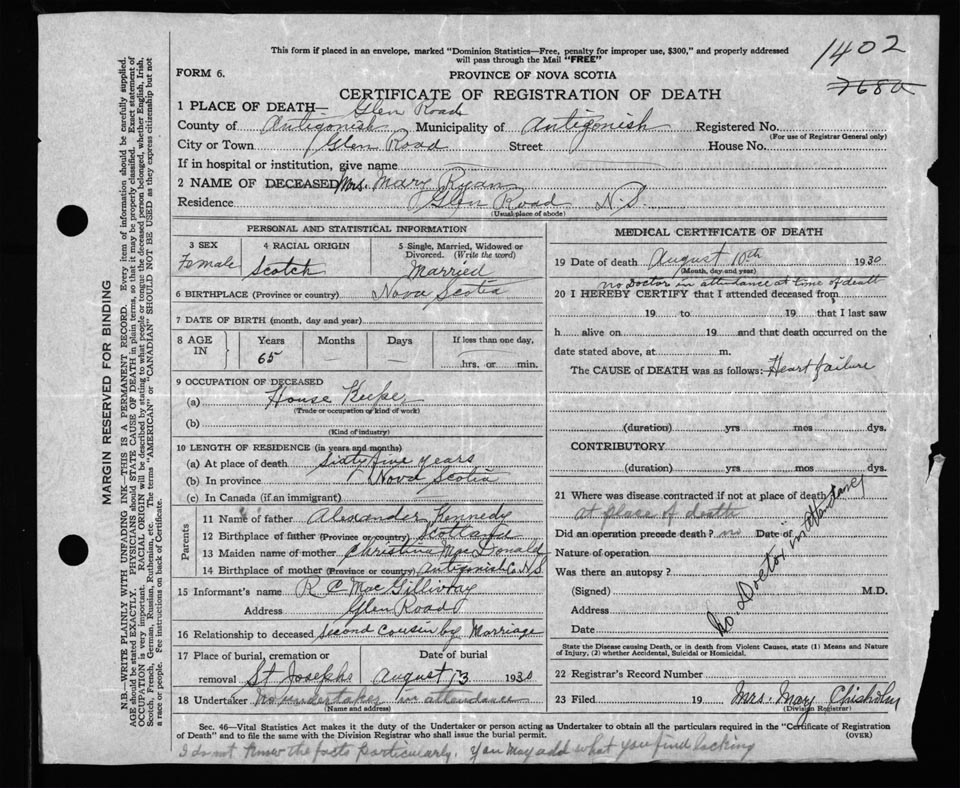 This form if placed in an envelope, marked "Dominion Statistics—Free, penalty for improper use, $300," and properly addressed
will pass through the Mail "FREE"
1402
7680
FORM 6.
PROVINCE OF NOVA SCOTIA
CERTIFICATE OF REGISTRATION OF DEATH
1 PLACE OF DEATH— Glen Road
County of Antigonish Municipality of Antigonish Registered No.
(For use of Registrar General only)
City or Town Glen Road Street House No.
If in hospital or institution, give name
2 NAME OF DECEASED Mrs. Mary Ryan
Residence Glen Road N.S.
(Usual place of abode)
PERSONAL AND STATISTICAL INFORMATION
3 SEX Female
4 RACIAL ORIGIN Scotch
5 Single, Married, Widowed or
Divorced. (Write the word)
Married
6 BIRTHPLACE (Province or country) Nova Scotia
7 DATE OF BIRTH (month, day and year)
8 AGE IN Years 65 Months — Days — If less than one day,
hrs. or min.
9 OCCUPATION OF DECEASED
(a) House Keeper
(Trade or occupation or kind of work)
(b)
(Kind of industry)
10 LENGTH OF RESIDENCE (in years and months)
(a) At place of death Sixty five years
(b) In province Nova Scotia
(c) In Canada (if an immigrant)
Parents
11 Name of father Alexander Kennedy
12 Birthplace of father (Province or country) Scotland
13 Maiden name of mother Christina MacDonald
14 Birthplace of mother (Province or country) Antigonish Co. N.S.
15 Informant's name R C MacGillivray
Address Glen Road
16 Relationship to deceased Second Cousin by Marriage
17 Place of burial, cremation or Date of burial
removal St Josephs August 13 1930
18 Undertaker No undertaker in attendance
(Name and address)
MEDICAL CERTIFICATE OF DEATH
19 Date of death August 10th 1930
(Month, day and year)
no Doctor in attendance at time of death
20 I HEREBY CERTIFY that I attended deceased from
19 to 19 that I last saw
h alive on 19 and that death occurred on the
date stated above, at m.
The CAUSE of DEATH was as follows: Heart failure
(duration) yrs mos dys.
CONTRIBUTORY
(duration) yrs mos dys.
21 Where was disease contracted if not at place of death
at place of death
Did an operation precede death? no Date of
Nature of operation
Was there an autopsy?
(Signed) M.D.
Address
Date
No. Doctor in attendance
State the Disease causing Death, or in death from Violent Causes, state (1) Means and Nature
of Injury, (2) whether Accidental, Suicidal or Homicidal.
22 Registrar's Record Number
23 Filed 19 Mrs. May Chisholm
(Division Registrar)
Sec. 46—Vital Statistics Act makes it the duty of the Undertaker or person acting as Undertaker to obtain all the particulars required in the "Certificate of Registration
of Death" and to file the same with the Division Registrar who shall issue the burial permit. (OVER)
I do not know the facts particularly. you may add what you find lacking
MARGIN RESERVED FOR BINDING
N.B.—WRITE PLAINLY WITH UNFADING INK—THIS IS A PERMANENT RECORD. Every item of information should be carefully supplied.
AGE should be stated EXACTLY. PHYSICIANS should STATE CAUSE OF DEATH in plain terms, so that it may be properly classified. Exact statement of
OCCUPATION is very important. RACIAL ORIGIN will be described by stating to what people or tongue the deceased person belonged, whether English, Irish,
Scotch, French, German, Russian, Ruthenian, etc. The terms "AMERICAN" or "CANADIAN" SHOULD NOT BE USED as they express citizenship but not
a race or people. See instructions on back of Certificate.